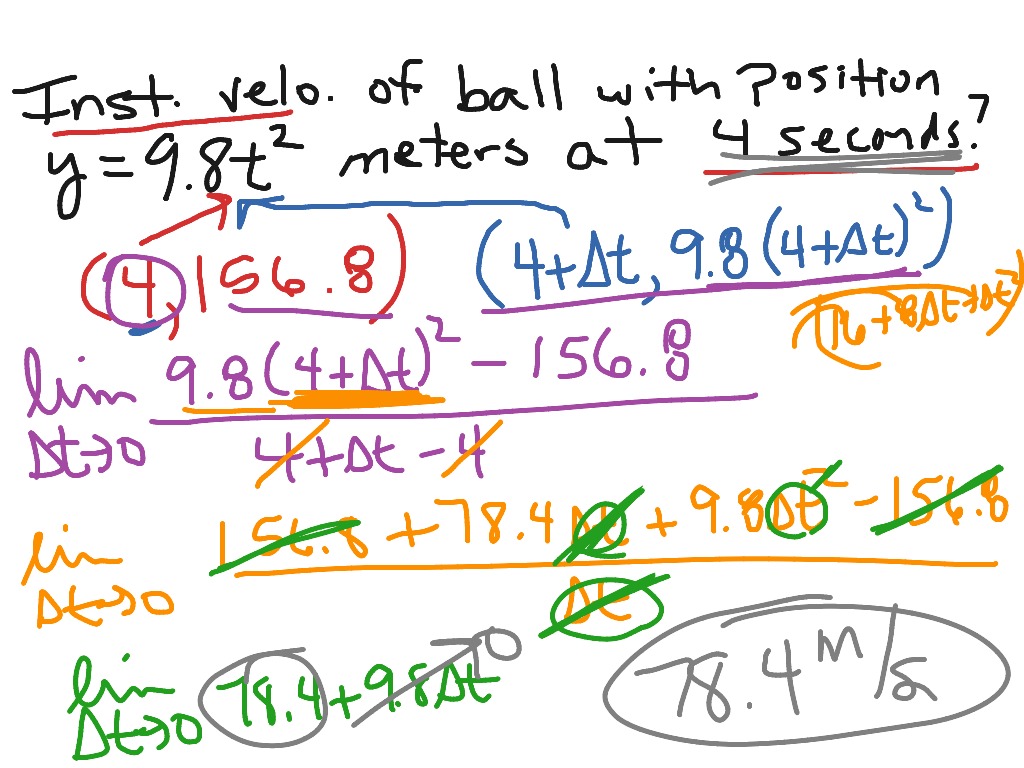 Inst. velo. of ball with position
y = 9.8t² meters at 4 seconds?
(4, 156.8) (4+Δt, 9.8(4+Δt)²)
(16 + 8Δt + Δt²)
lim Δt→0 9.8(4+Δt)² − 156.8
4+Δt − 4
lim Δt→0 156.8 + 78.4 Δt + 9.8Δt² − 156.8
Δt
lim Δt→0 78.4 + 9.8Δt 0
78.4 m/s